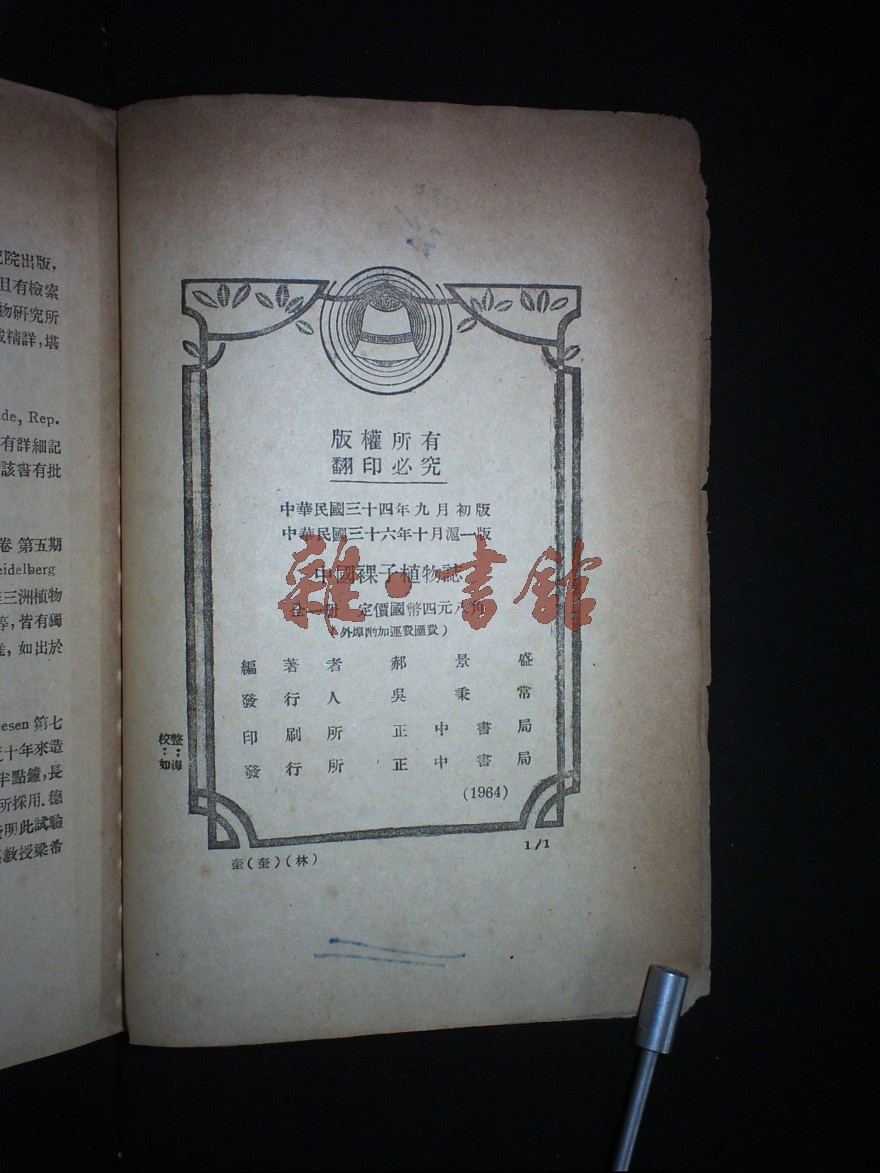 究院出版,
且有檢索
物研究所
精詳,堪
de, Rep.
有詳細記
該書有批
卷 第五期
eidelberg
三洲植物
等,皆有獨
,如出於
esen 第七
十年來造
半點鐘,長
所採用.德
明此試驗
教授梁希
版權所有
翻印必究
中華民國三十四年九月初版
中華民國三十六年十月滬一版
中國裸子植物誌
全一冊 定價國幣四元八角
(外埠酌加運費匯費)
雜·書館
編著者 郝景盛
發行人 吳秉常
印刷所 正中書局
發行所 正中書局
(1964)
整:海
校:如
1/1
奎(奎)(林)